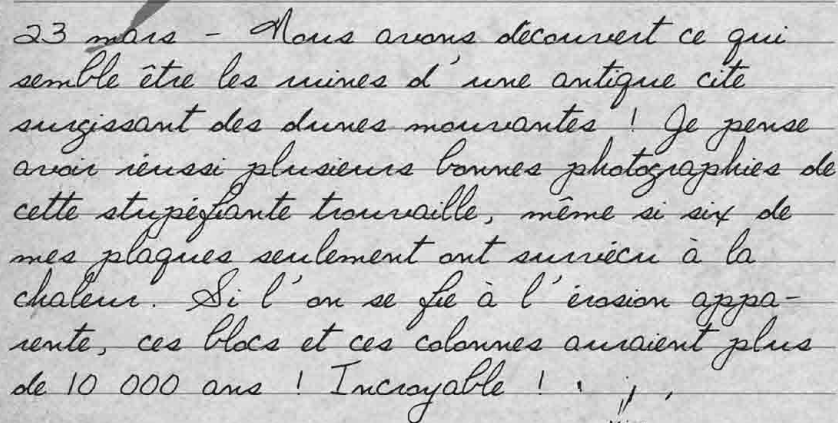 23 mars - Nous avons découvert ce qui
semble être les ruines d'une antique cité
surgissant des dunes mouvantes ! Je pense
avoir réussi plusieurs bonnes photographies de
cette stupéfiante trouvaille, même si six de
mes plaques seulement ont survécu à la
chaleur. Si l'on se fie à l'érosion appa-
rente, ces blocs et ces colonnes auraient plus
de 10 000 ans ! Incroyable !